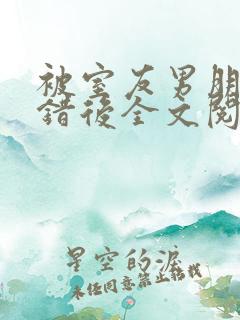 被室友男朋
错後全文閱
星空的淚
未经同意禁止转载